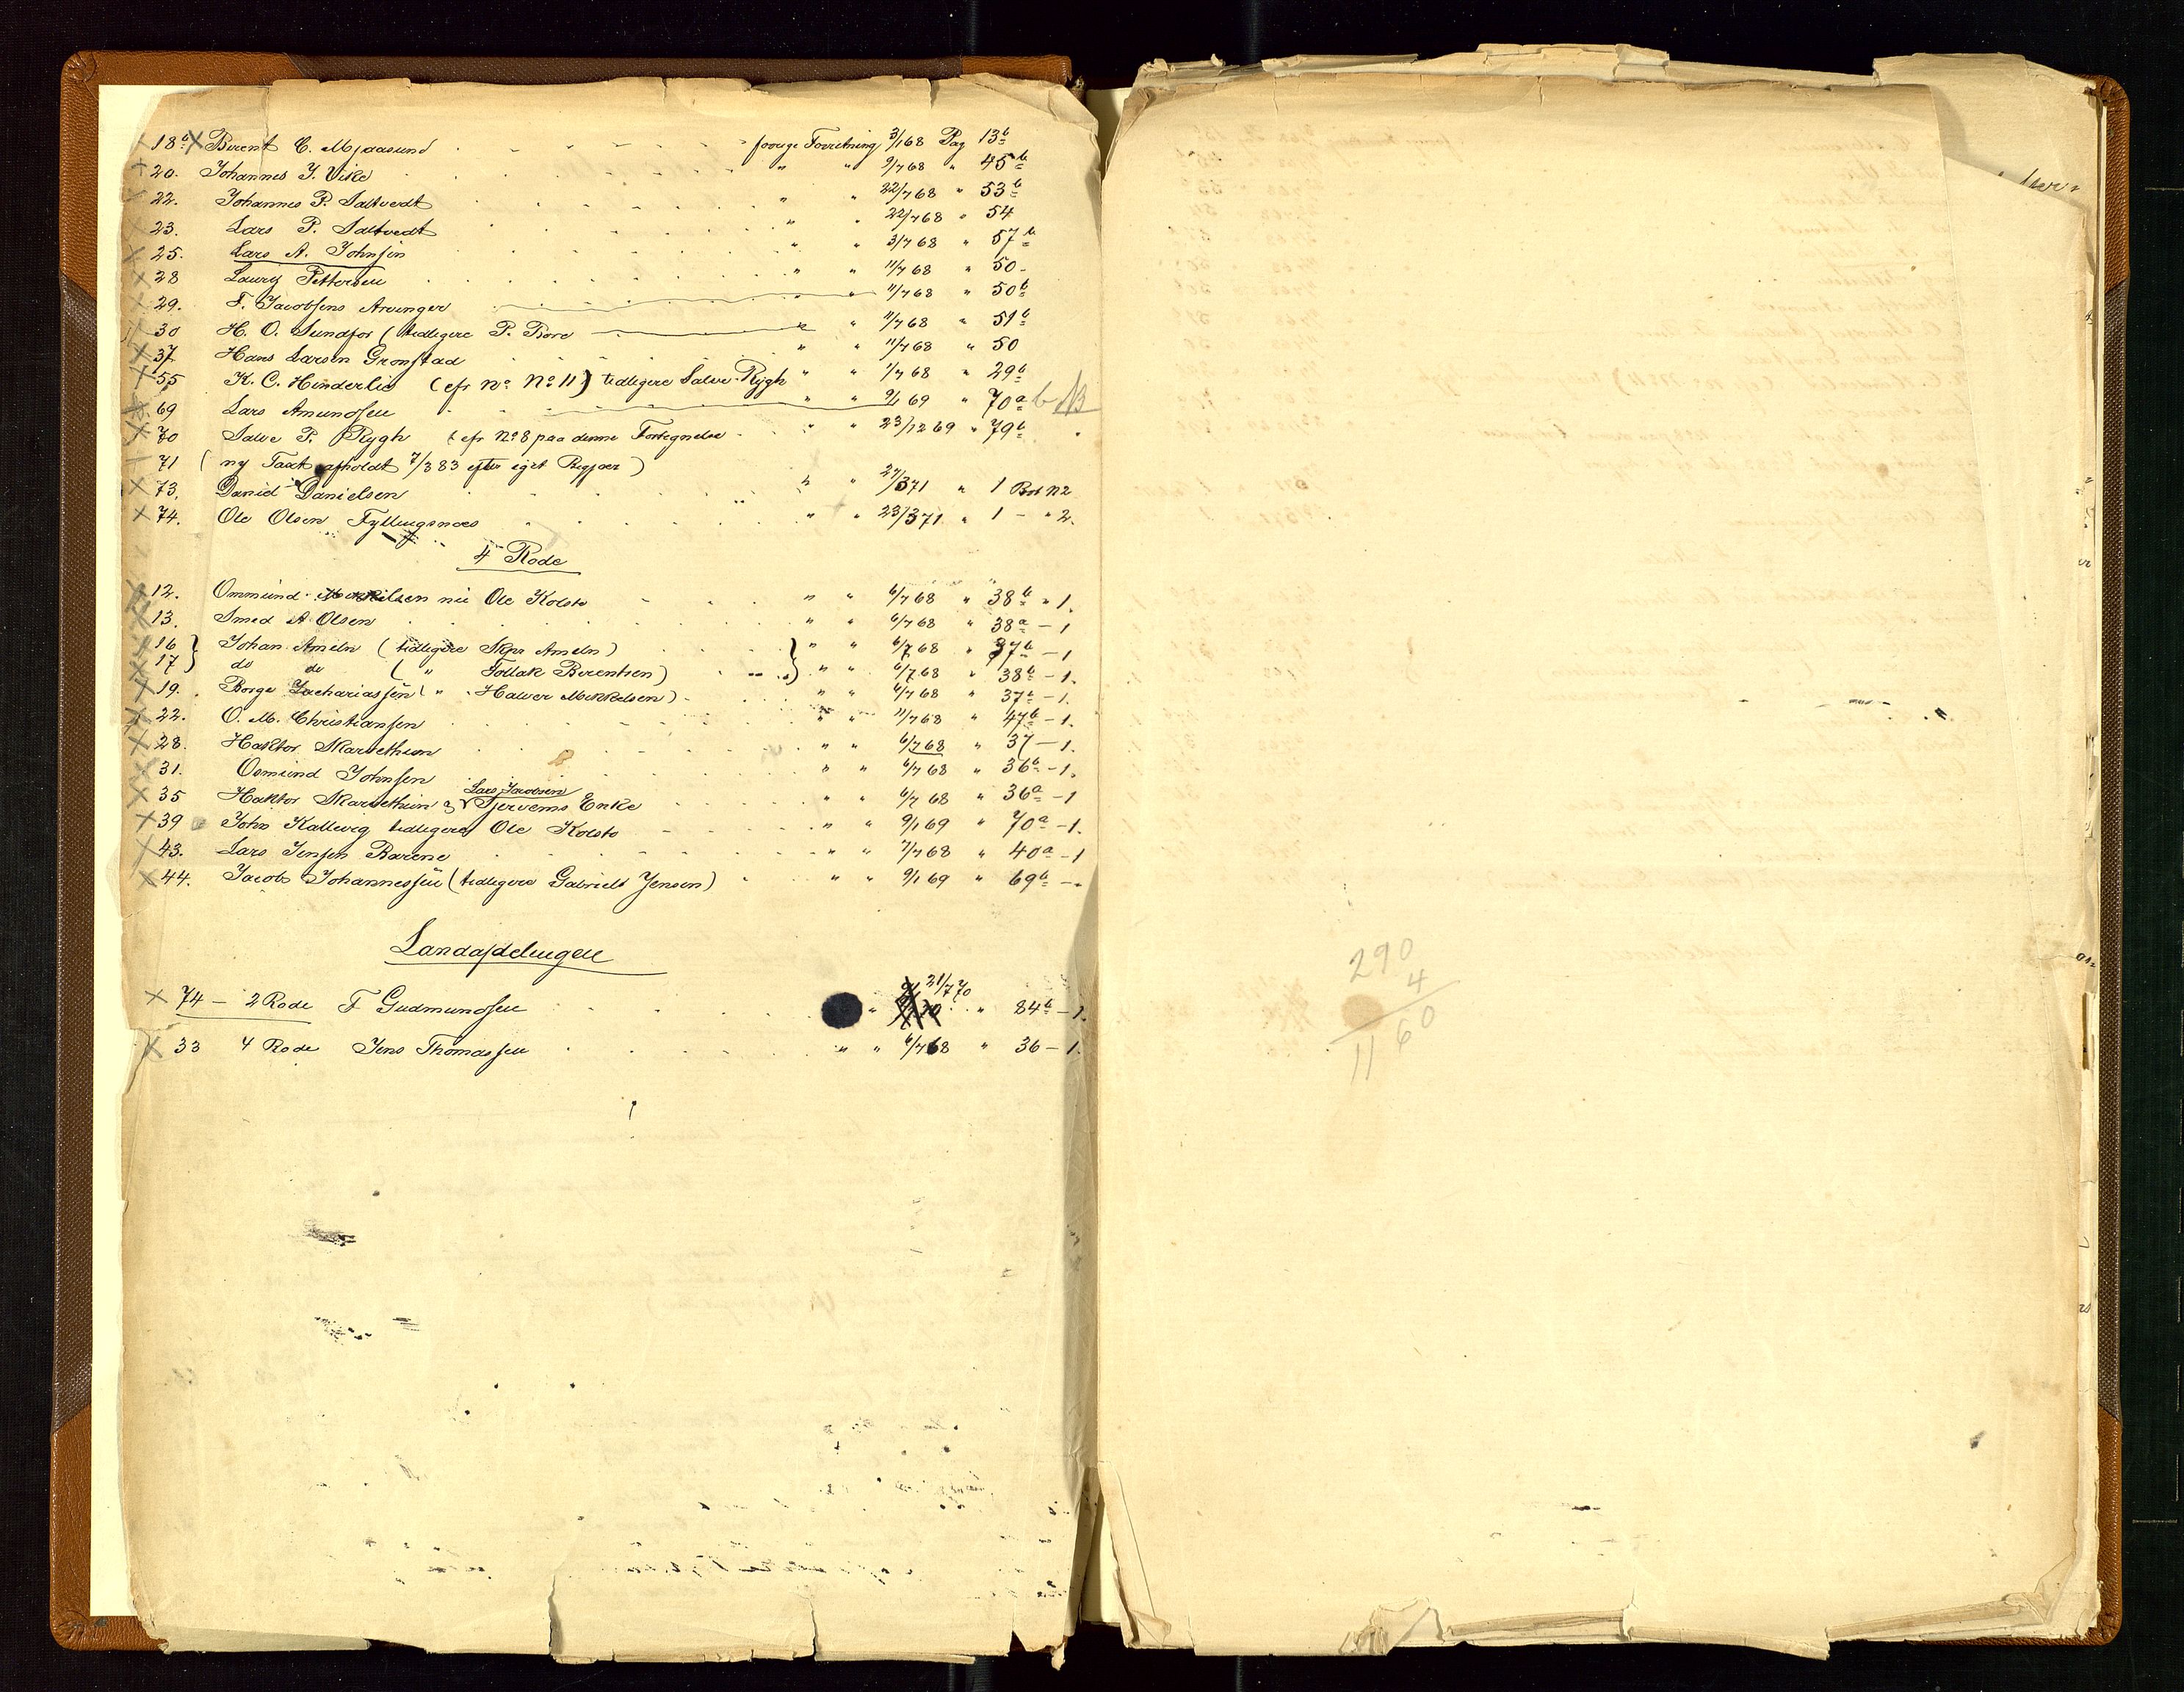 18b Berent C. Mjaasund - - - - - forrige Forretning 3/1 68 Pag 13b
20. Johannes J. Vike " " 9/7 68 " 45b
22. Johannes P. Saltvedt " " 22/7 68 " 53b
23. Lars P. Saltvedt " " 22/7 68 " 54
25. Lars A. Johnsen " " 3/7 68 " 57b
28 Lauritz Pettersen " " 11/7 68 " 50-
29. F. Jacobsens Arvinger " " 11/7 68 " 50b
30 H. O. Sundfor (tidligere P. Bore " " 11/7 68 " 51b
37. Hans Larsen Gronstad " " 11/7 68 " 50
55 K. C. Hinderlie (cfr no No 11) tidligere Salve Rygh " " 1/7 68 " 29b
69 Lars Amundsen " " 9/1 69 " 70a b
70 Salve P. Rygh (cfr No 8 paa denne Fortegnelse " " 23/12 69 " 79b
71 (ny Taxt afholdt 7/3 83 efter eget Begjær)
73. Daniel Danielsen " " 27/3 71 " 1 Bot N2
74. Ole Olsen Fyllingsnæs " " 23/3 71 " 1 - " 2.
4 Rode
12. Ommund Mikkelsen nu Ole Kolsto " " 6/7 68 " 38b " 1.
13. Smed A Olsen 6/7 68 " 38a - 1
16 } Johan Ameln (tidligere Skpr Ameln) } " " 6/7 68 " 37b - 1
17 } do do ( " Tollak Berentsen) } " " 6/7 68 " 38b - 1.
19. Borge Zachariassen ( " Halvor Mikkelsen) " " 6/7 68 " 37b - 1.
22. O. M. Christiansen " " 11/7 68 " 47b - 1.
28. Haktor Skarvethun " " 6/7 68 " 37 - 1.
31. Osmund Johnsen " " 6/7 68 " 36b - 1.
Lars Jacobsen
35 Haktor Skarvethun & Gjervems Enke " " 6/7 68 " 36a - 1
39 John Kallevig tidligere Ole Kolsto " " 9/1 69 " 70a - 1.
43. Lars Jensen Barene " " 7/7 68 " 40a - 1
44. Jacob Johannessen (tidligere Gabriels Jensen) " " 9/1 69 " 69b - "
Landafdelingen
74 - 2 Rode F Gudmundsen " 21/7 70 " 84b - 1.
33 4 Rode Jens Thomassen " " 6/7 68 " 36 - 1.
290
4
11 60